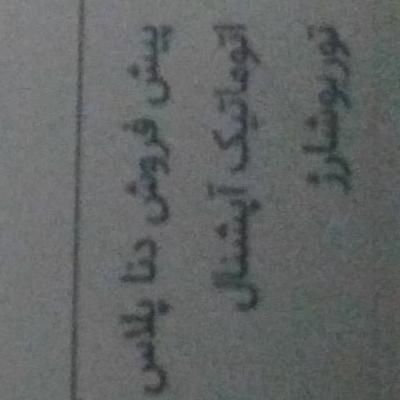 پیش فروش دنا پلاس
اتوماتیک آپشنال
توربوشارژ